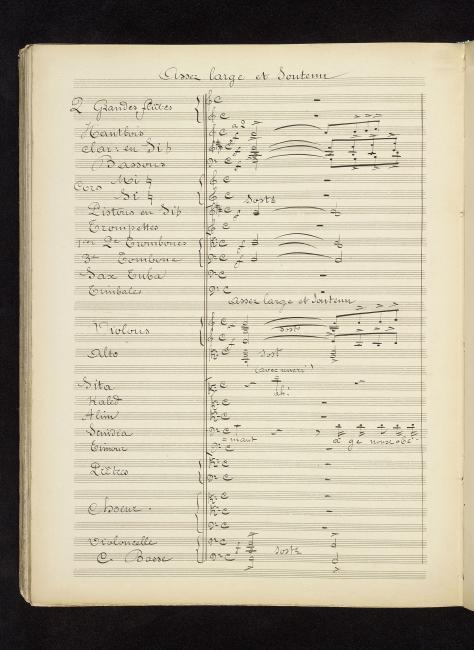 Assez large et Soutenu
2 Grandes flûtes
Hautbois
Clar: en Si♭
Bassons
Cors Mi ♮
Si ♮
Sost
Pistons en Si♭
Trompettes
1er 2e Trombones
3e Trombone
Sax Tuba
Timbales
Assez large et Soutenu
Violons
Sost
Alto
Sost
Sita
Ah!
Kaled
Alim
Scindia
Timour
Prêtres
Choeur.
Violoncelle
C. Basse
Sost